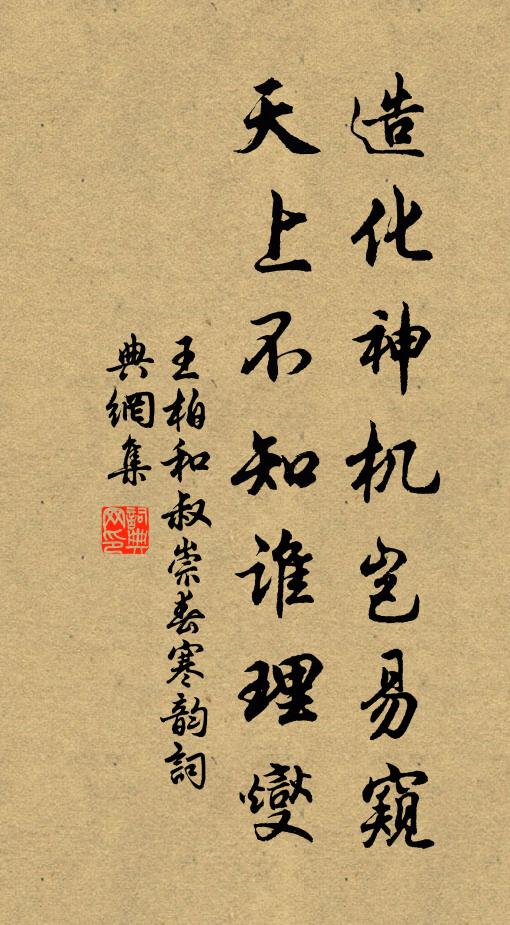 造化神机岂易窥
天上不知谁理燮
王柏和叔崇春寒韵詞
典網集
詞典
网印